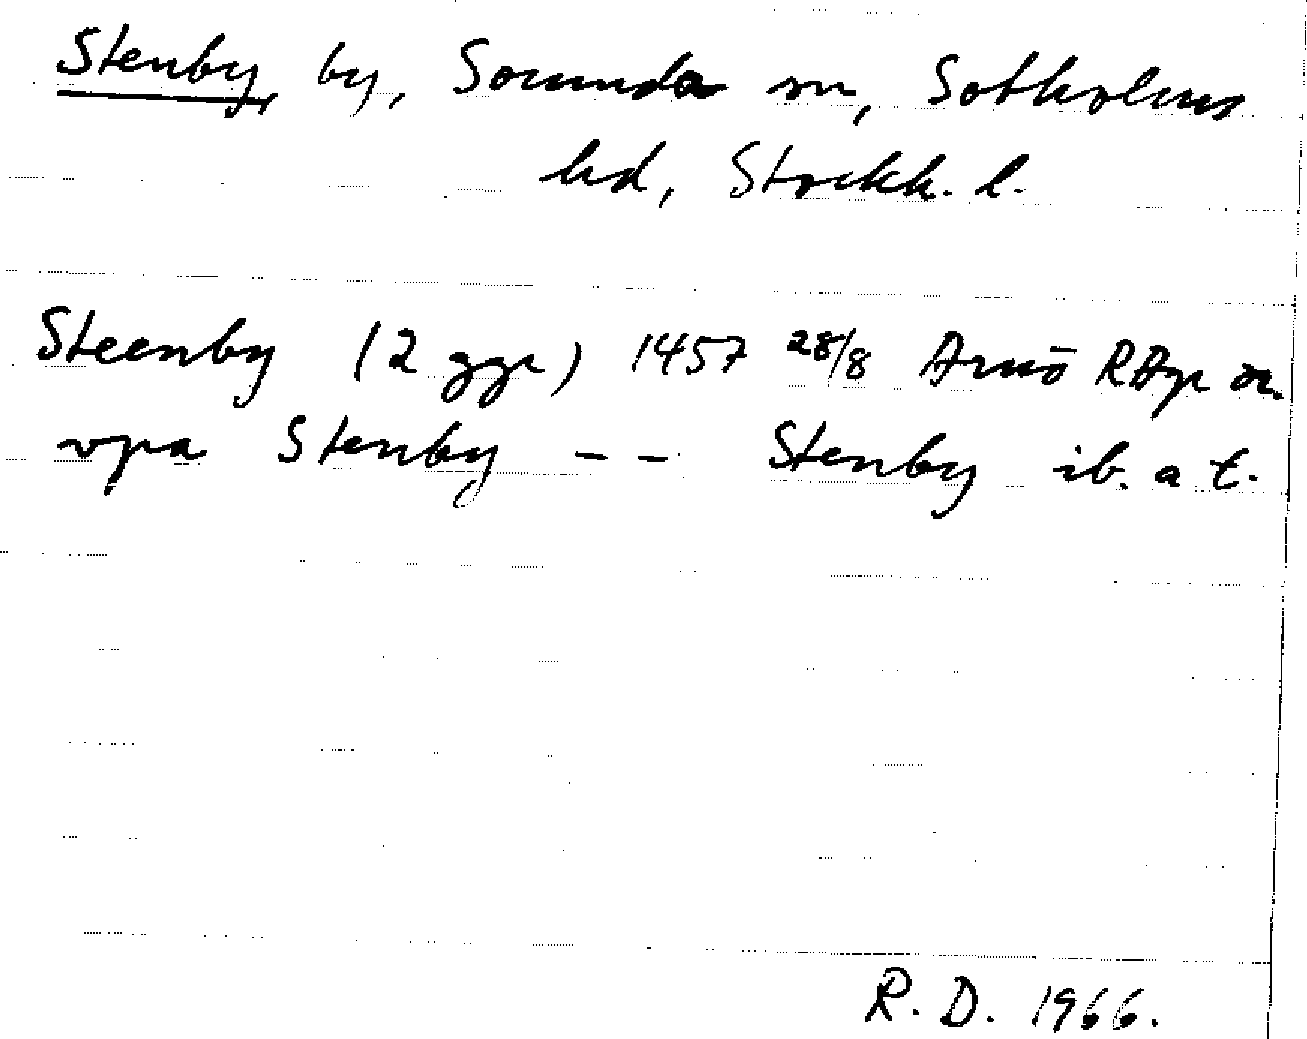 Stenby, by, Sorunda sn, Sotholms
hd, Stockh. l.
Steenby (2 ggr) 1457 28/8 Arnö RApp or.
vpa Stenby -- Stenby ib. a t.
R. D. 1966.